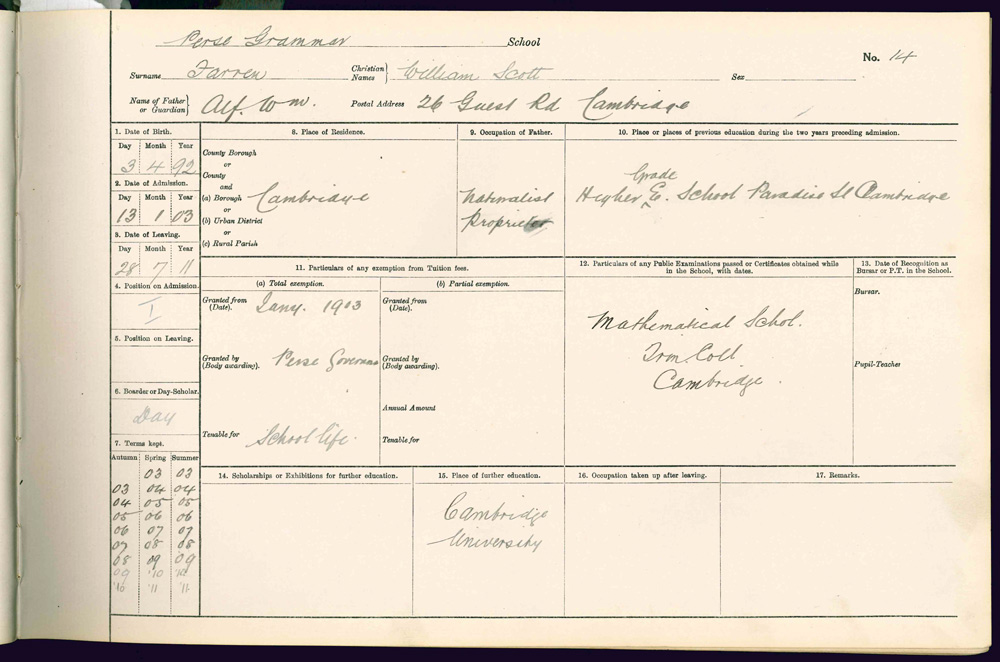 Perse Grammar School
No. 14
Surname Farren Christian Names William Scott Sex
Name of Father or Guardian Alf. Wm. Postal Address 26 Guest Rd Cambridge
1. Date of Birth.
Day Month Year
3 4 92
2. Date of Admission.
Day Month Year
13 1 03
3. Date of Leaving.
Day Month Year
28 7 11
4. Position on Admission.
I
5. Position on Leaving.
6. Boarder or Day-Scholar.
Day
7. Terms kept.
Autumn Spring Summer
03 03
03 04 04
04 05 05
05 06 06
06 07 07
07 08 08
08 09 09
09 '10 '10
'10 '11 '11
8. Place of Residence.
County Borough
or
County
and
(a) Borough Cambridge
or
(b) Urban District
or
(c) Rural Parish
9. Occupation of Father.
Naturalist
Proprietor
10. Place or places of previous education during the two years preceding admission.
Grade
Higher E. School Paradise St Cambridge
11. Particulars of any exemption from Tuition fees.
(a) Total exemption.
Granted from (Date). Jany. 1903
Granted by (Body awarding). Perse Governors
Tenable for School life.
(b) Partial exemption.
Granted from (Date).
Granted by (Body awarding).
Annual Amount
Tenable for
12. Particulars of any Public Examinations passed or Certificates obtained while
in the School, with dates.
Mathematical Schol.
Trin. Coll
Cambridge.
13. Date of Recognition as
Bursar or P.T. in the School.
Bursar.
Pupil-Teacher
14. Scholarships or Exhibitions for further education.
15. Place of further education.
Cambridge
University
16. Occupation taken up after leaving.
17. Remarks.